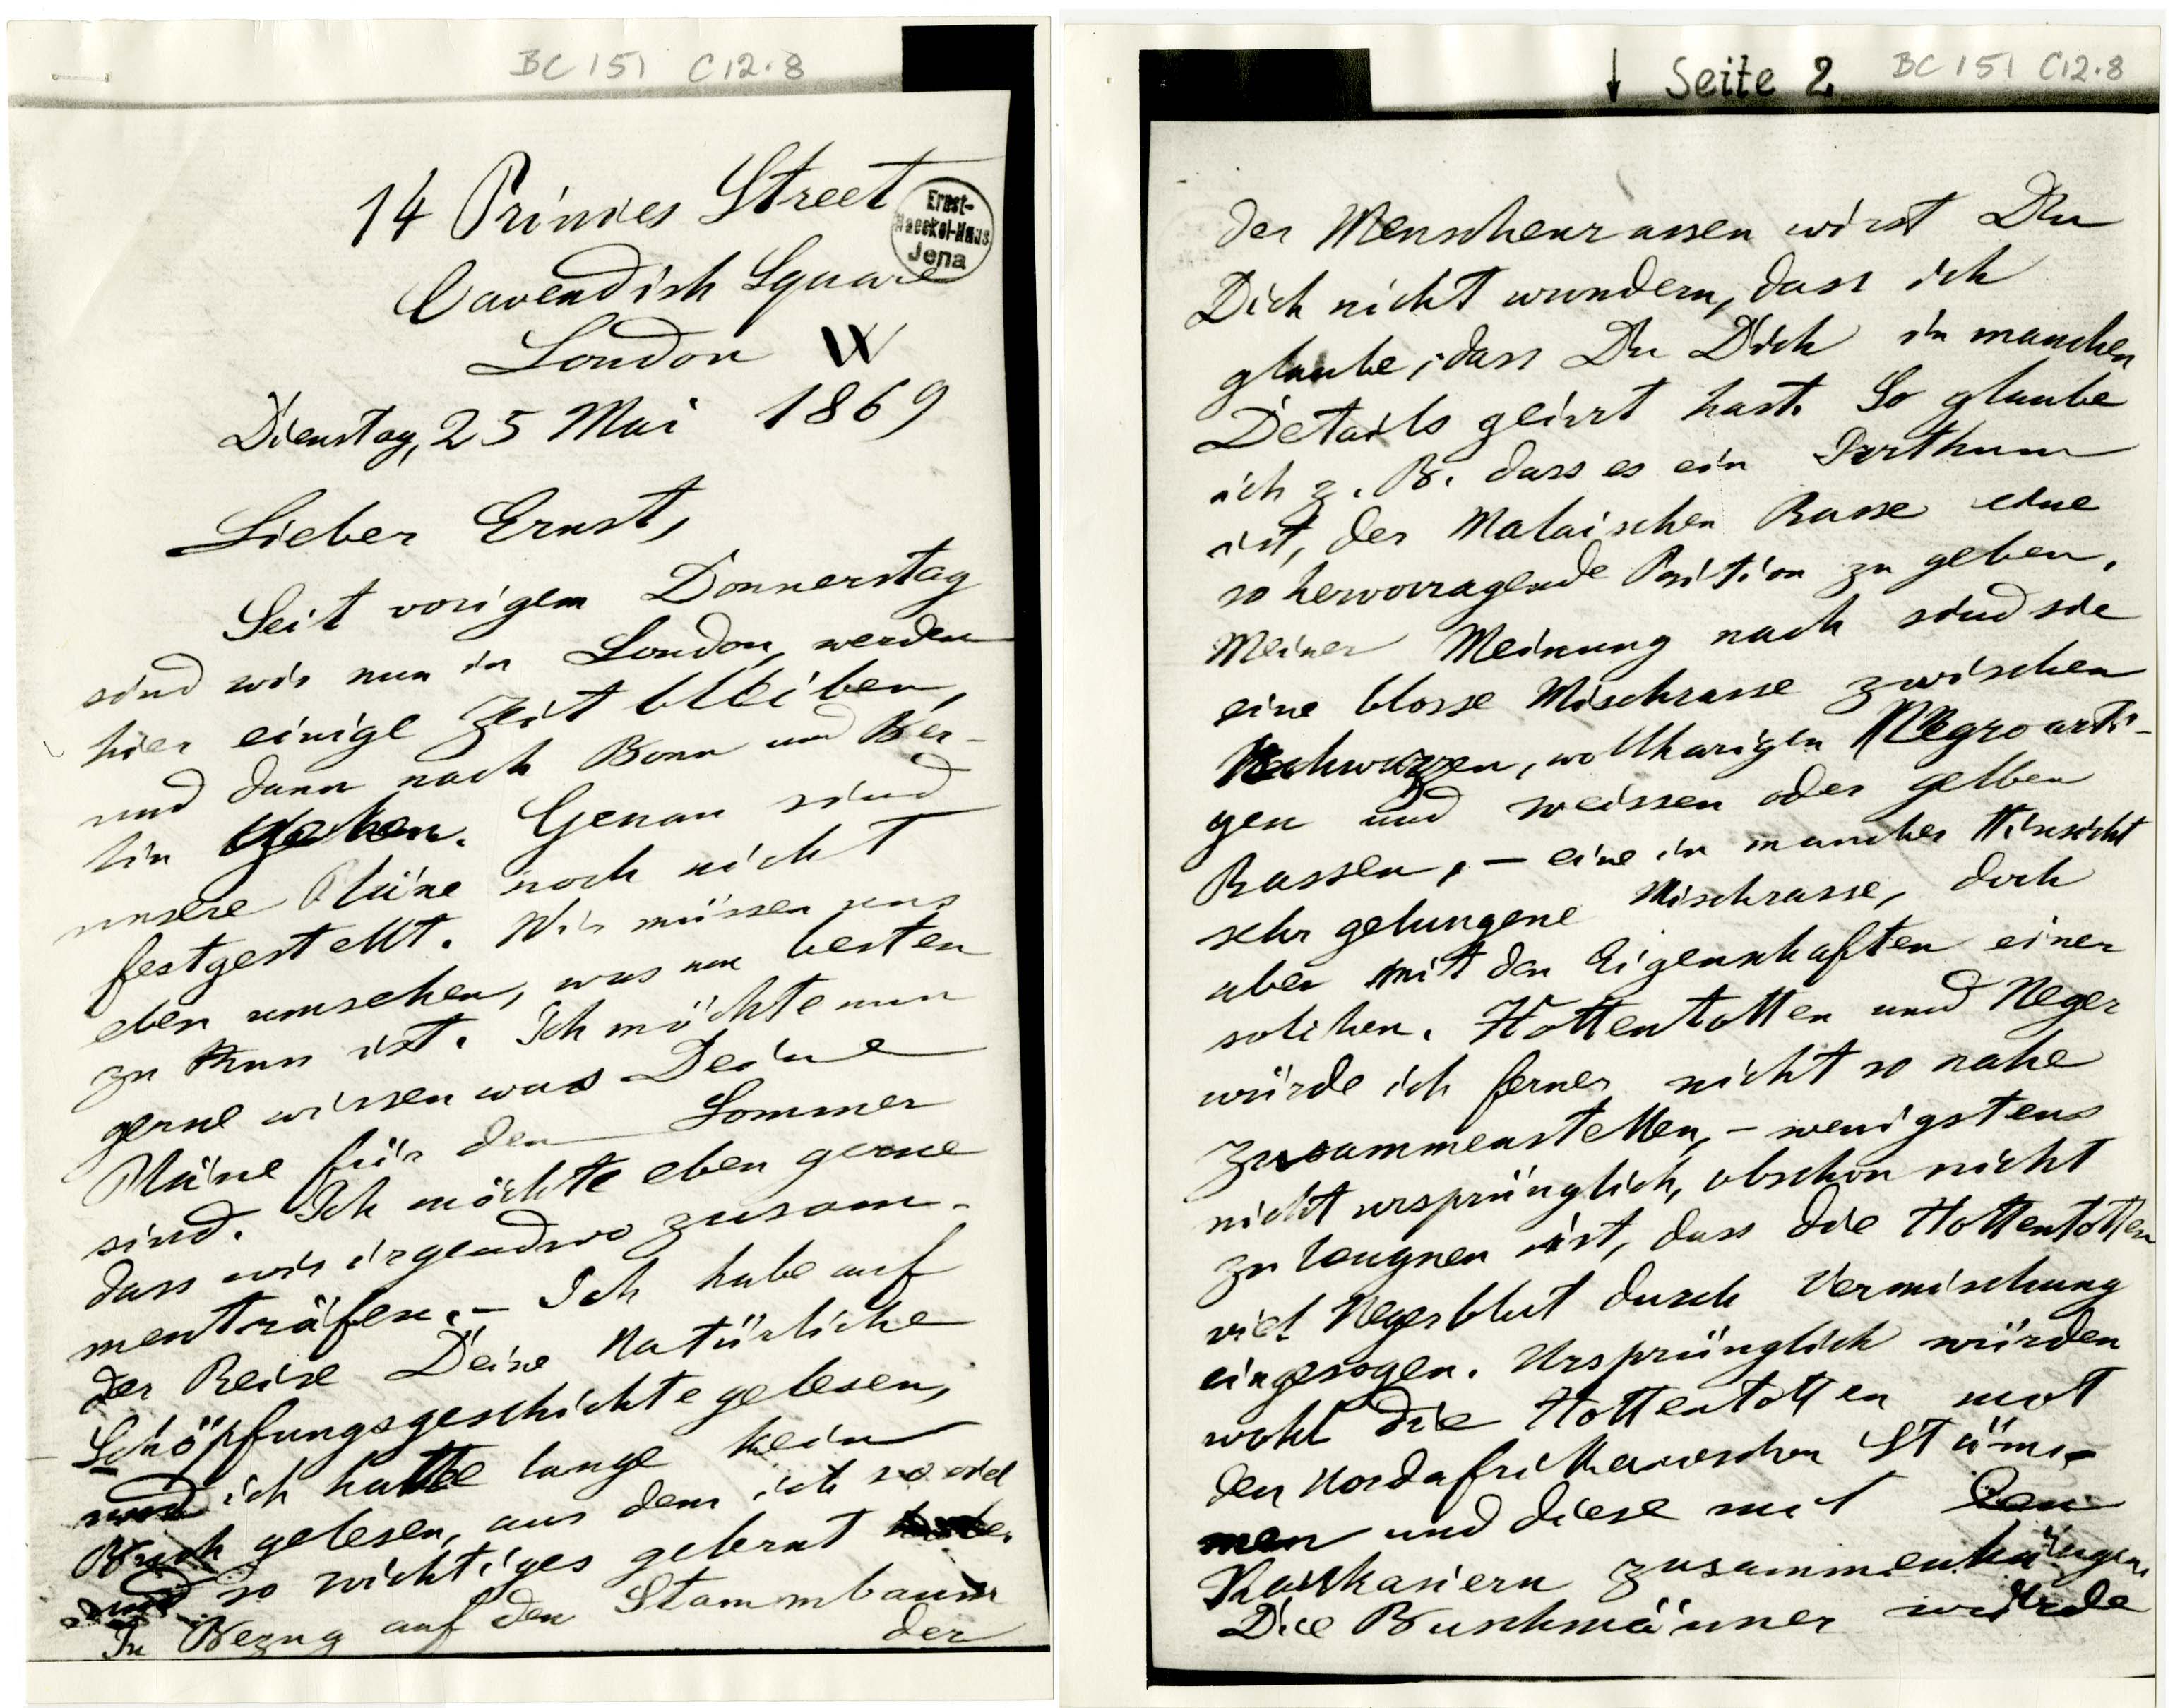 BC 151 C12.8
14 Princes Street
Ernst-
Haeckel-Haus
Jena
Cavendish Square
London W
Dienstag, 25 Mai 1869
Lieber Ernst,
Seit vorigem Donnerstag
sind wir nun in London, werden
hier einige Zeit bleiben,
und dann nach Bonn und Ber-
lin gehen. Genau sind
unsere Pläne noch nicht
festgestellt. Wir müssen uns
eben umsehen, was am besten
zu thun ist. Ich möchte nun
gerne wissen was Deine
Pläne für den Sommer
sind. Ich möchte eben gerne
dass wir irgendwo zusam-
menträfen. – Ich habe auf
der Reise Deine Natürliche
Schöpfungsgeschichte gelesen,
und ich hatte lange kein
Buch gelesen, aus dem ich so viel
und so wichtiges gelernt habe.
In Bezug auf den Stammbaum
der
↓ Seite 2 BC 151 C12.8
der Menschenrassen wirst Du
Dich nicht wundern, dass ich
glaube, dass Du Dich in manchen
Details geirrt hast. So glaube
ich z. B. dass es ein Irrthum
ist, der Malaischen Rasse eine
so hervorragende Position zu geben.
Meiner Meinung nach sind sie
eine blosse Mischrasse zwischen
schwarzen, wollharigen Negroarti-
gen und weissen oder gelben
Rassen, – eine in mancher Hinsicht
sehr gelungene Mischrasse, doch
aber mit den Eigenschaften einer
solchen. Hottentotten und Neger
würde ich ferner nicht so nahe
zusammenstellen, – wenigstens
nicht ursprünglich, obschon nicht
zu leugnen ist, dass die Hottentotten
viel Negerblut durch Vermischung
eingesogen. Ursprünglich würden
wohl die Hottentotten mit
den Nordafrikanischen Stäm-
men und diese mit den
Kaukasiern zusammenhängen.
Die Buschmänner würde